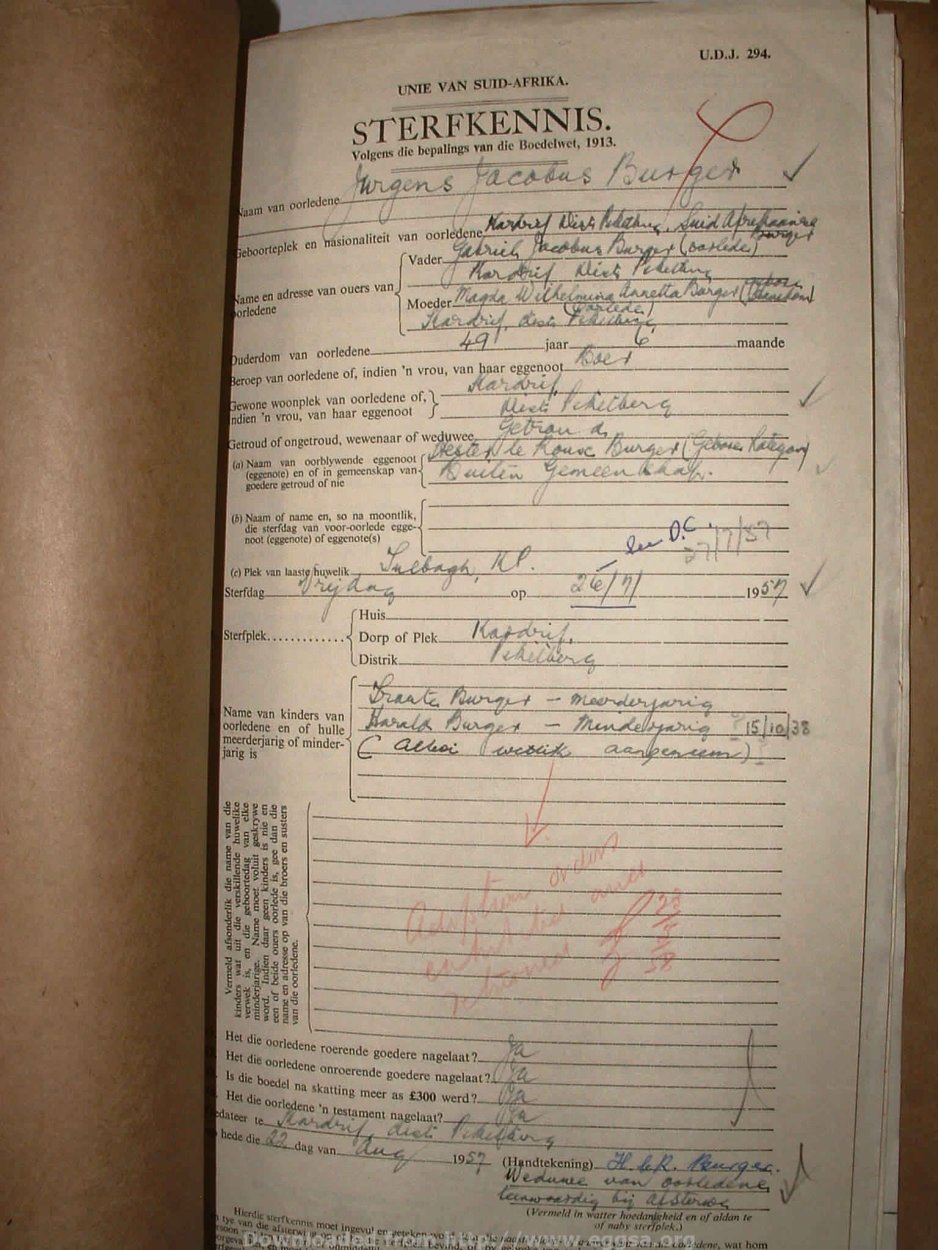 U.D.J. 294.
UNIE VAN SUID-AFRIKA.
STERFKENNIS.
Volgens die bepalings van die Boedelwet, 1913.
Naam van oorledene Jurgens Jacobus Burger
Geboorteplek en nasionaliteit van oorledene Kardrif Dist. Suid Afrikaanse
Burger
Name en adresse van ouers van oorledene
Vader Gabriel Jacobus Burger (oorlede)
Kardrif Dist.
Moeder Magda Wilhelmina Annetta Burger (
(oorlede)
Kardrif, dist.
Ouderdom van oorledene 49 jaar 6 maande
Beroep van oorledene of, indien 'n vrou, van haar eggenoot Boer
Gewone woonplek van oorledene of, indien 'n vrou, van haar eggenoot
Kardrif
Dist. Piketberg
Getroud of ongetroud, wewenaar of weduwee Getroud
(a) Naam van oorblywende eggenoot (eggenote) en of in gemeenskap van goedere getroud of nie
Hester le Roux Burger (Gebore
Buiten Gemeenskap.
(b) Naam of name en, so na moontlik, die sterfdag van voor-oorlede eggenoot (eggenote) of eggenote(s)
see D.C.
27/7/57
(c) Plek van laaste huwelik Tulbagh, KP.
Sterfdag Vrijdag op 26/7/ 1957
Sterfplek
Huis
Dorp of Plek Kardrif.
Distrik Piketberg
Name van kinders van oorledene en of hulle meerderjarig of minderjarig is
Burger – meerderjarig
Harald Burger – Minderjarig 15/10/38
(Albei wettik aangeneem)
Vermeld afsonderlik die name van die
kinders wat uit die verskillende huwelike
verwek is, en die geboortedag van elke
minderjarige. Name moet voluit geskrywe
word. Indien daar geen kinders is nie en
een of beide ouers oorlede is, gee dan die
name en adresse op van die broers en susters
van die oorledene.
Adoption orders
returned
Het die oorledene roerende goedere nagelaat? Ja
Het die oorledene onroerende goedere nagelaat? Ja
Is die boedel na skatting meer as £300 werd? Ja
Het die oorledene 'n testament nagelaat? Ja
edateer te Kardrif, dist. Piketberg
hede die 22 dag van Aug 1957
(Handtekening) H. le R. Burger.
Weduwee van oorledene
teenwoordig bij afsterwe
(Vermeld in watter hoedanigheid en of aldan te
of naby sterfplek.)
Hierdie sterfkennis moet ingevul en geteken wo
Downloaded from http://www.eggsa.org